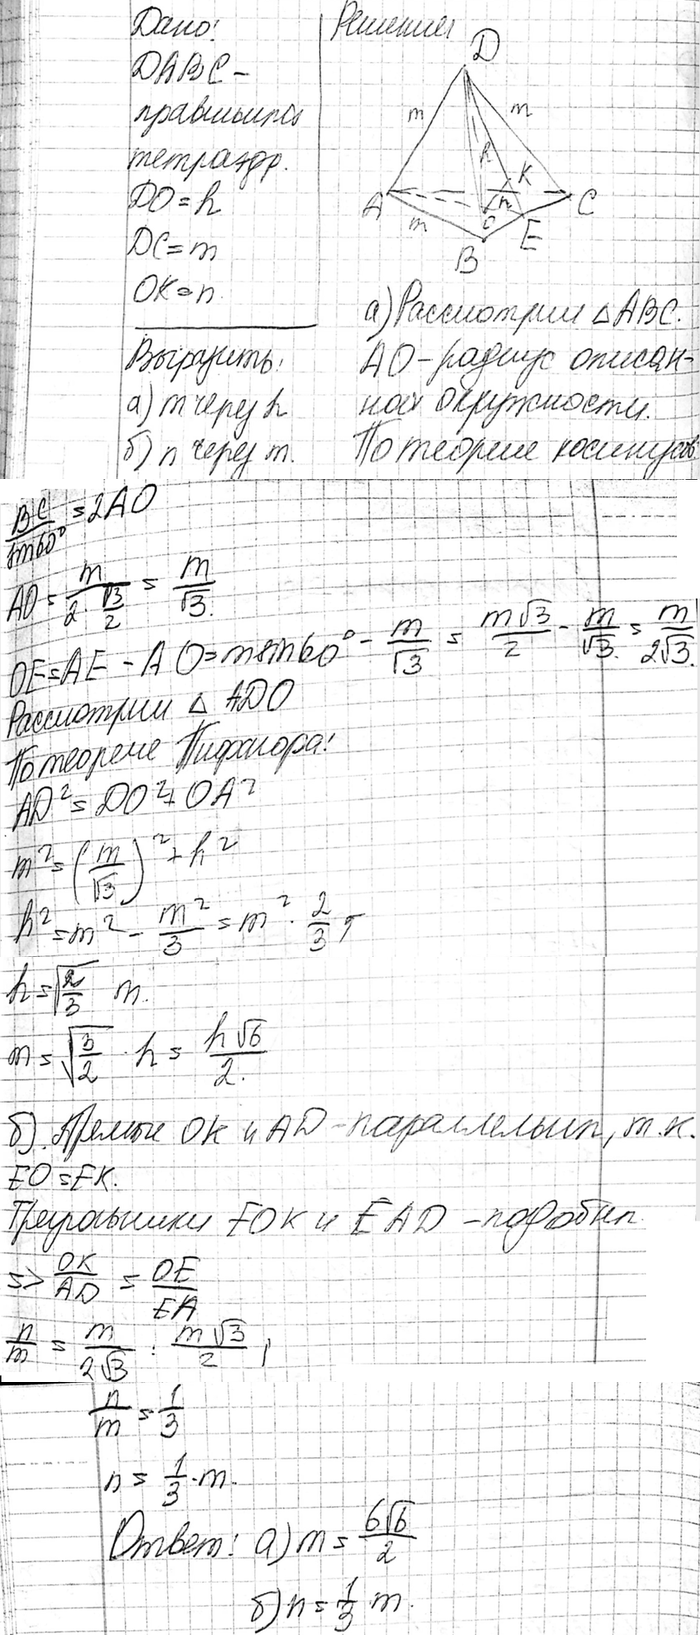 Дано:
DABC -
правильный
тетраэдр.
DO = h
DC = m
OK = n
Выразить:
а) m через h
б) n через m.
Решение
D
m
m
h
K
A
n
O
C
m
B
E
а) Рассмотрим △ABC.
AO - радиус описан-
ной окружности.
По теореме косинусов
BC/sin60° = 2AO
AO = m/(2·√3/2) = m/√3.
OE = AE - AO = m sin60° - m/√3 = m√3/2 - m/√3 = m/2√3.
Рассмотрим △ ADO
По теореме Пифагора:
AD² = DO² + OA²
m² = (m/√3)² + h²
h² = m² - m²/3 = m² · 2/3
h = √(2/3) m.
m = √(3/2) · h = h√6/2.
б). Прямые OK и AD - параллельны, т.к.
EO = EK.
Треугольники EOK и EAD - подобны
=> OK/AD = OE/EA
n/m = m/2√3 : m√3/2 ;
n/m = 1/3
n = 1/3 · m.
Ответ: а) m = 6√6/2
б) n = 1/3 m.